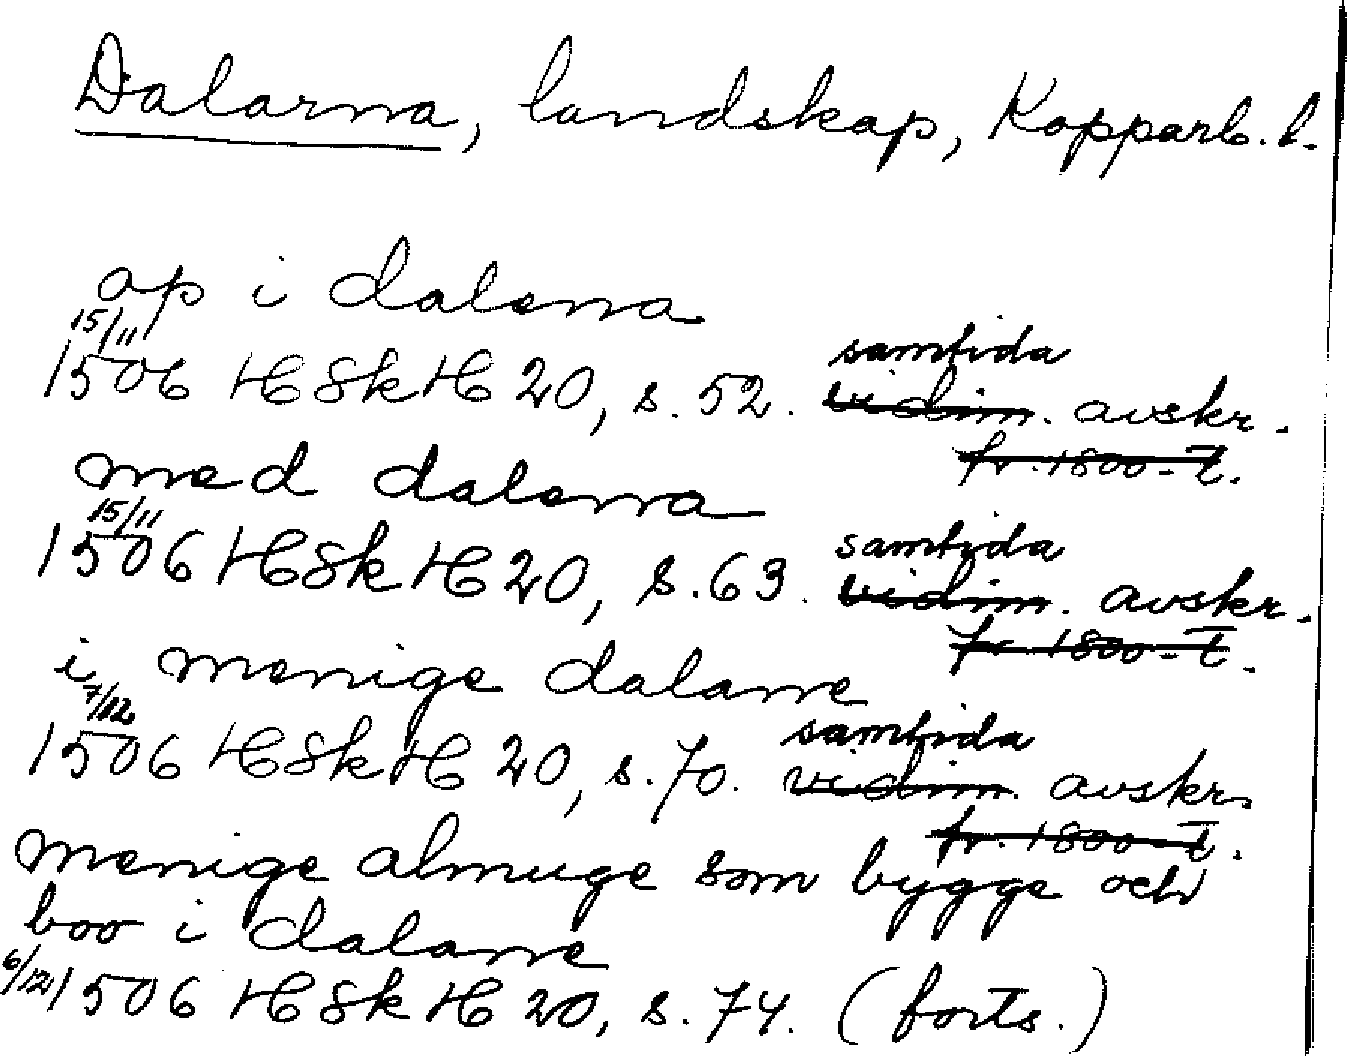 Dalarna, landskap, Kopparb. l.
op i dalena
15/11
1506 HSkH 20, s. 52. samtida
vidim. avskr.
fr. 1800-t.
med dalerna
15/11
1506 HSkH 20, s. 63. samtida
vidim. avskr.
fr. 1800-t.
i menige dalarne
7/12
1506 HSkH 20, s. 70. samtida
vidim. avskr.
fr. 1800-t.
menige almuge som bygge och
boo i dalarne
6/12 1506 HSkH 20, s. 74. (forts.)